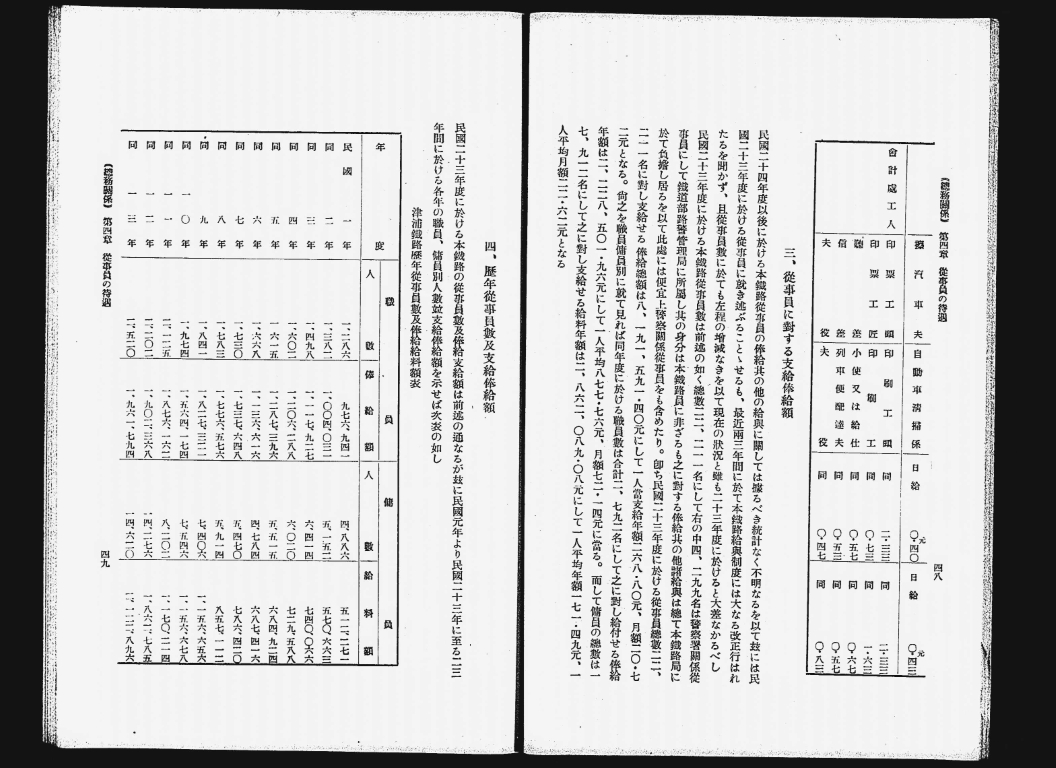 （總務關係） 第四章 從事員の待遇
四八
擦汽車夫 自動車清掃係 日給 〇・四〇元 日給 〇・四三元
會計處工人 印票工頭 印刷工頭 同 二・三三 同 二・三三
印票工匠 印刷工 同 〇・七三 同 一・六三
聽差 小使又は給仕 同 〇・五七 同 〇・六七
信差 列車便配達夫 同 〇・五三 同 〇・五七
夫役 夫役 同 〇・四七 同 〇・八三
三、從事員に對する支給俸給額
民國二十四年度以後に於ける本鐵路從事員の俸給其の他の給與に關しては據るべき統計なく不明なるを以て玆には民
國二十三年度に於ける從事員に就き述ぶることゝせるも、最近兩三年間に於て本鐵路給與制度には大なる改正行はれ
たるを聞かず、且從事員數に於ても左程の增減なきを以て現在の狀況と雖も二十三年度に於けると大差なかるべし
民國二十三年度に於ける本鐵路從事員數は前述の如く總數二二、二一一名にして右の中四、二九九名は警察署關係從
事員にして鐵道部路警管理局に所屬し其の身分は本鐵路員に非ざるも之に對する俸給其の他諸給與は總て本鐵路局に
於て負擔し居るを以て此處には便宜上警察關係從事員をも含めたり。卽ち民國二十三年度に於ける從事員總數二二、
二一一名に對し支給せる俸給總額は八、一九一、五九一・四〇元にして一人當支給年額二六八・八〇元、月額二〇・七
二元となる。尙之を職員傭員別に就て見れば同年度に於ける職員數は合計二、七九二名にして之に對し給付せる俸給
年額は二、二二八、五〇一・九六元にして一人平均八七七・七六元、月額七二・一四元に當る。而して傭員の總數は一
七、九一二名にして之に對し支給せる給料年額は二、八六二、〇八九・〇八元にして一人平均年額一七一・四九元、一
人平均月額二二・六二元となる
四、歷年從事員數及支給俸給額
民國二十三年度に於ける本鐵路の從事員數及俸給支給額は前述の通なるが玆に民國元年より民國二十三年に至る二三
年間に於ける各年の職員、傭員別人數竝支給俸給額を示せば次表の如し
津浦鐵路歷年從事員數及俸給給料額表
年度 職員 傭員
人數 俸給額 人數 給料額
民國一年 一、二八六 九七六、九四一 四、八八六 五一二、二七一
同二年 一、三八二 一、〇〇四、〇三一 五、一五二 五七〇、六六三
同三年 一、四九八 一、一一七、九二七 六、二四四 七四〇、〇六六
同四年 一、六〇二 一、二〇六、二八八 六、〇二〇 七二九、五八八
同五年 一、六一五 一、二八七、三九六 五、五一五 六八四、九二四
同六年 一、六六八 一、二三六、六一六 四、七八四 六八七、四一六
同七年 一、七三〇 一、七三七、六四八 五、四七〇 七八六、四二〇
同八年 一、七八三 一、七七六、五七六 五、九一四 八五七、一一二
同九年 一、八四一 一、八二七、三二一 七、四〇六 一、一五六、六五六
同一〇年 一、九七四 一、五六四、一七四 七、五四六 一、一五六、六七八
同一一年 二、一二五 一、八七六、一六二 八、二〇二 一、一七〇、二一四
同一二年 二、二〇二 一、九〇二、三六八 一四、二七六 一、八六二、七八五
同一三年 二、五二〇 一、九六一、七九四 一四、六二〇 二、一二二、八九六
（總務關係） 第四章 從事員の待遇
四九